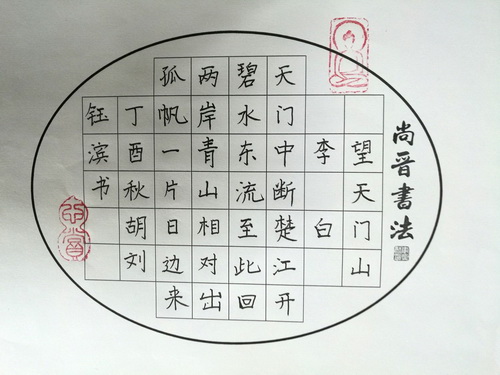 尚晋書法
望天门山
李白
天门中断楚江开
碧水东流至此回
两岸青山相对出
孤帆一片日边来
丁酉秋胡刘
钰滨书